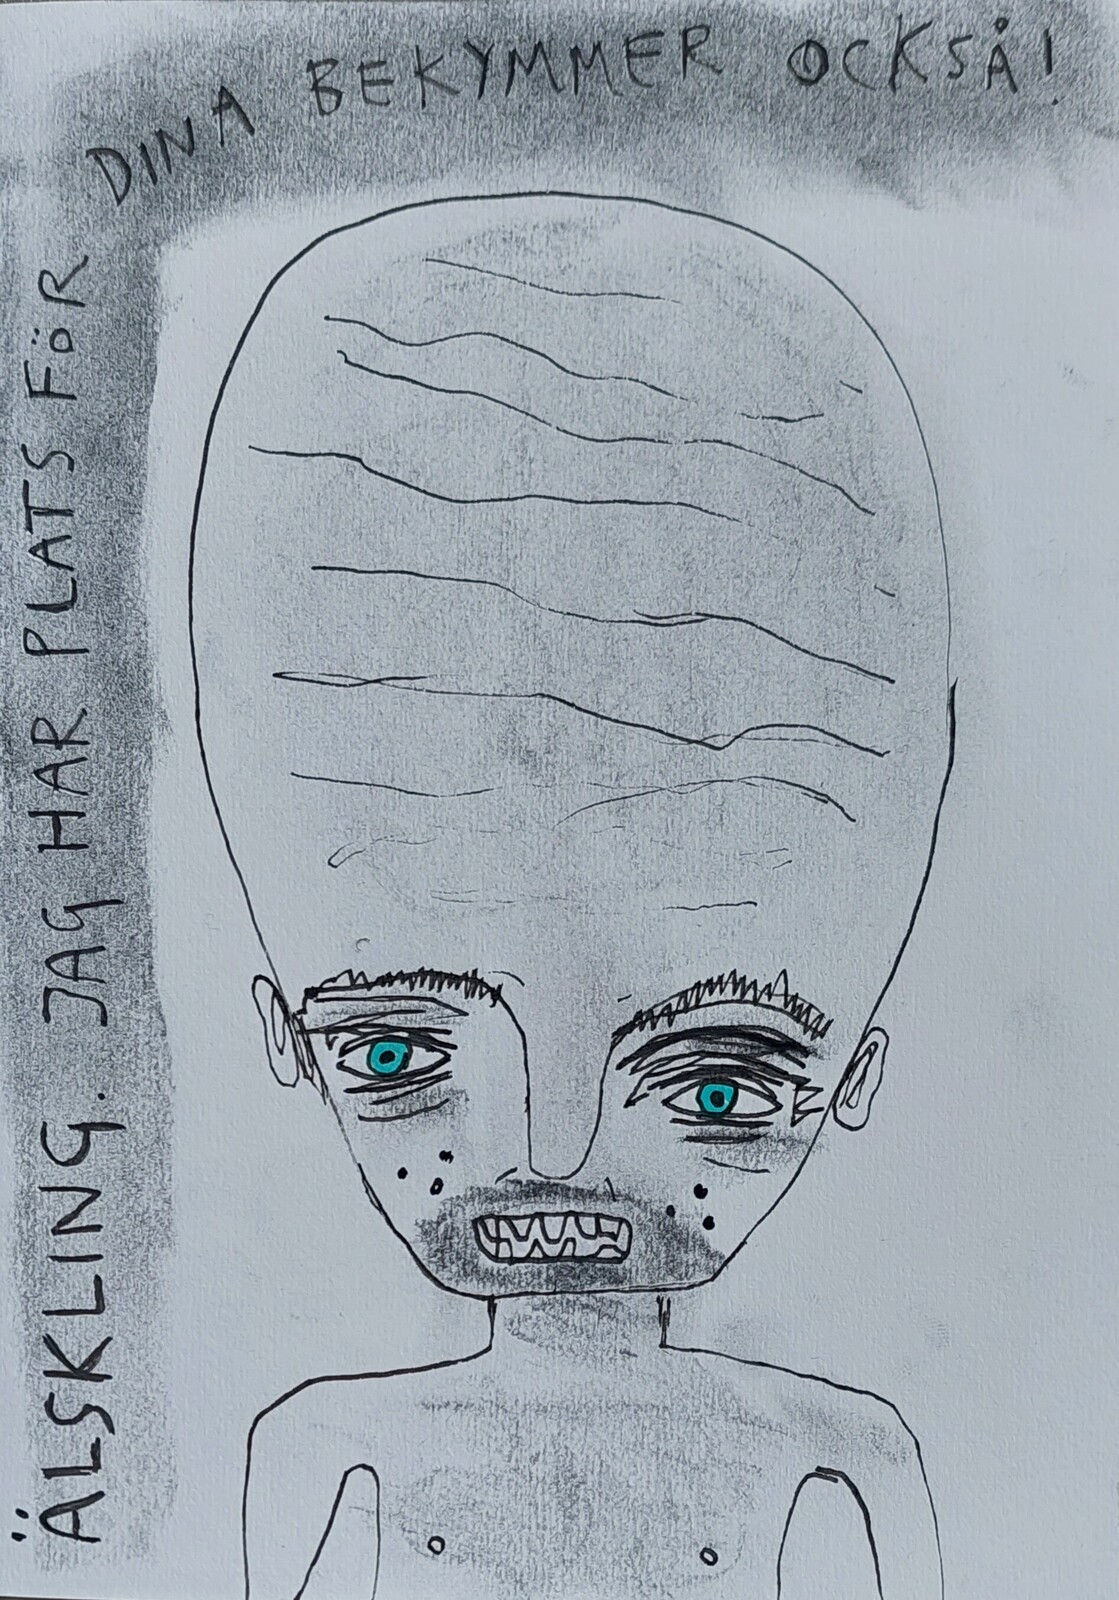 ÄLSKLING. JAG HAR PLATS FÖR
DINA BEKYMMER OCKSÅ!